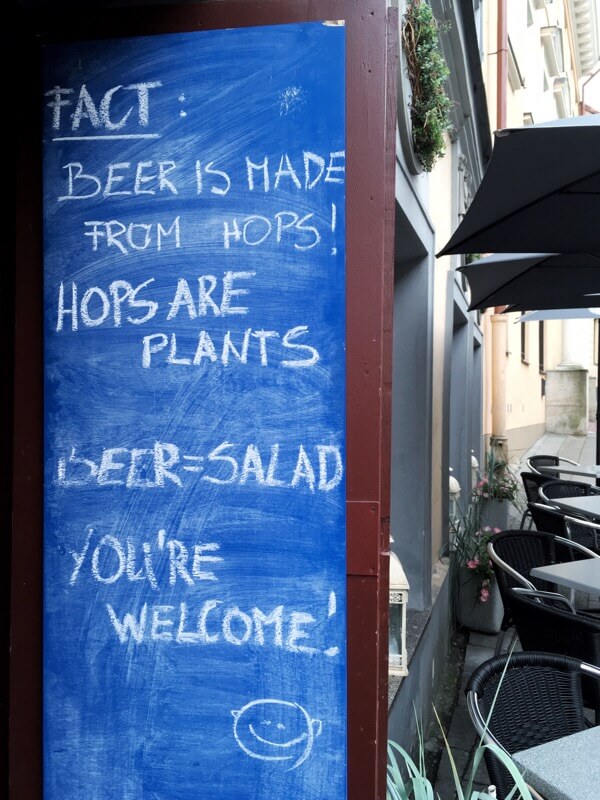 FACT:
BEER IS MADE
FROM HOPS!
HOPS ARE
PLANTS
BEER=SALAD
YOU'RE
WELCOME!